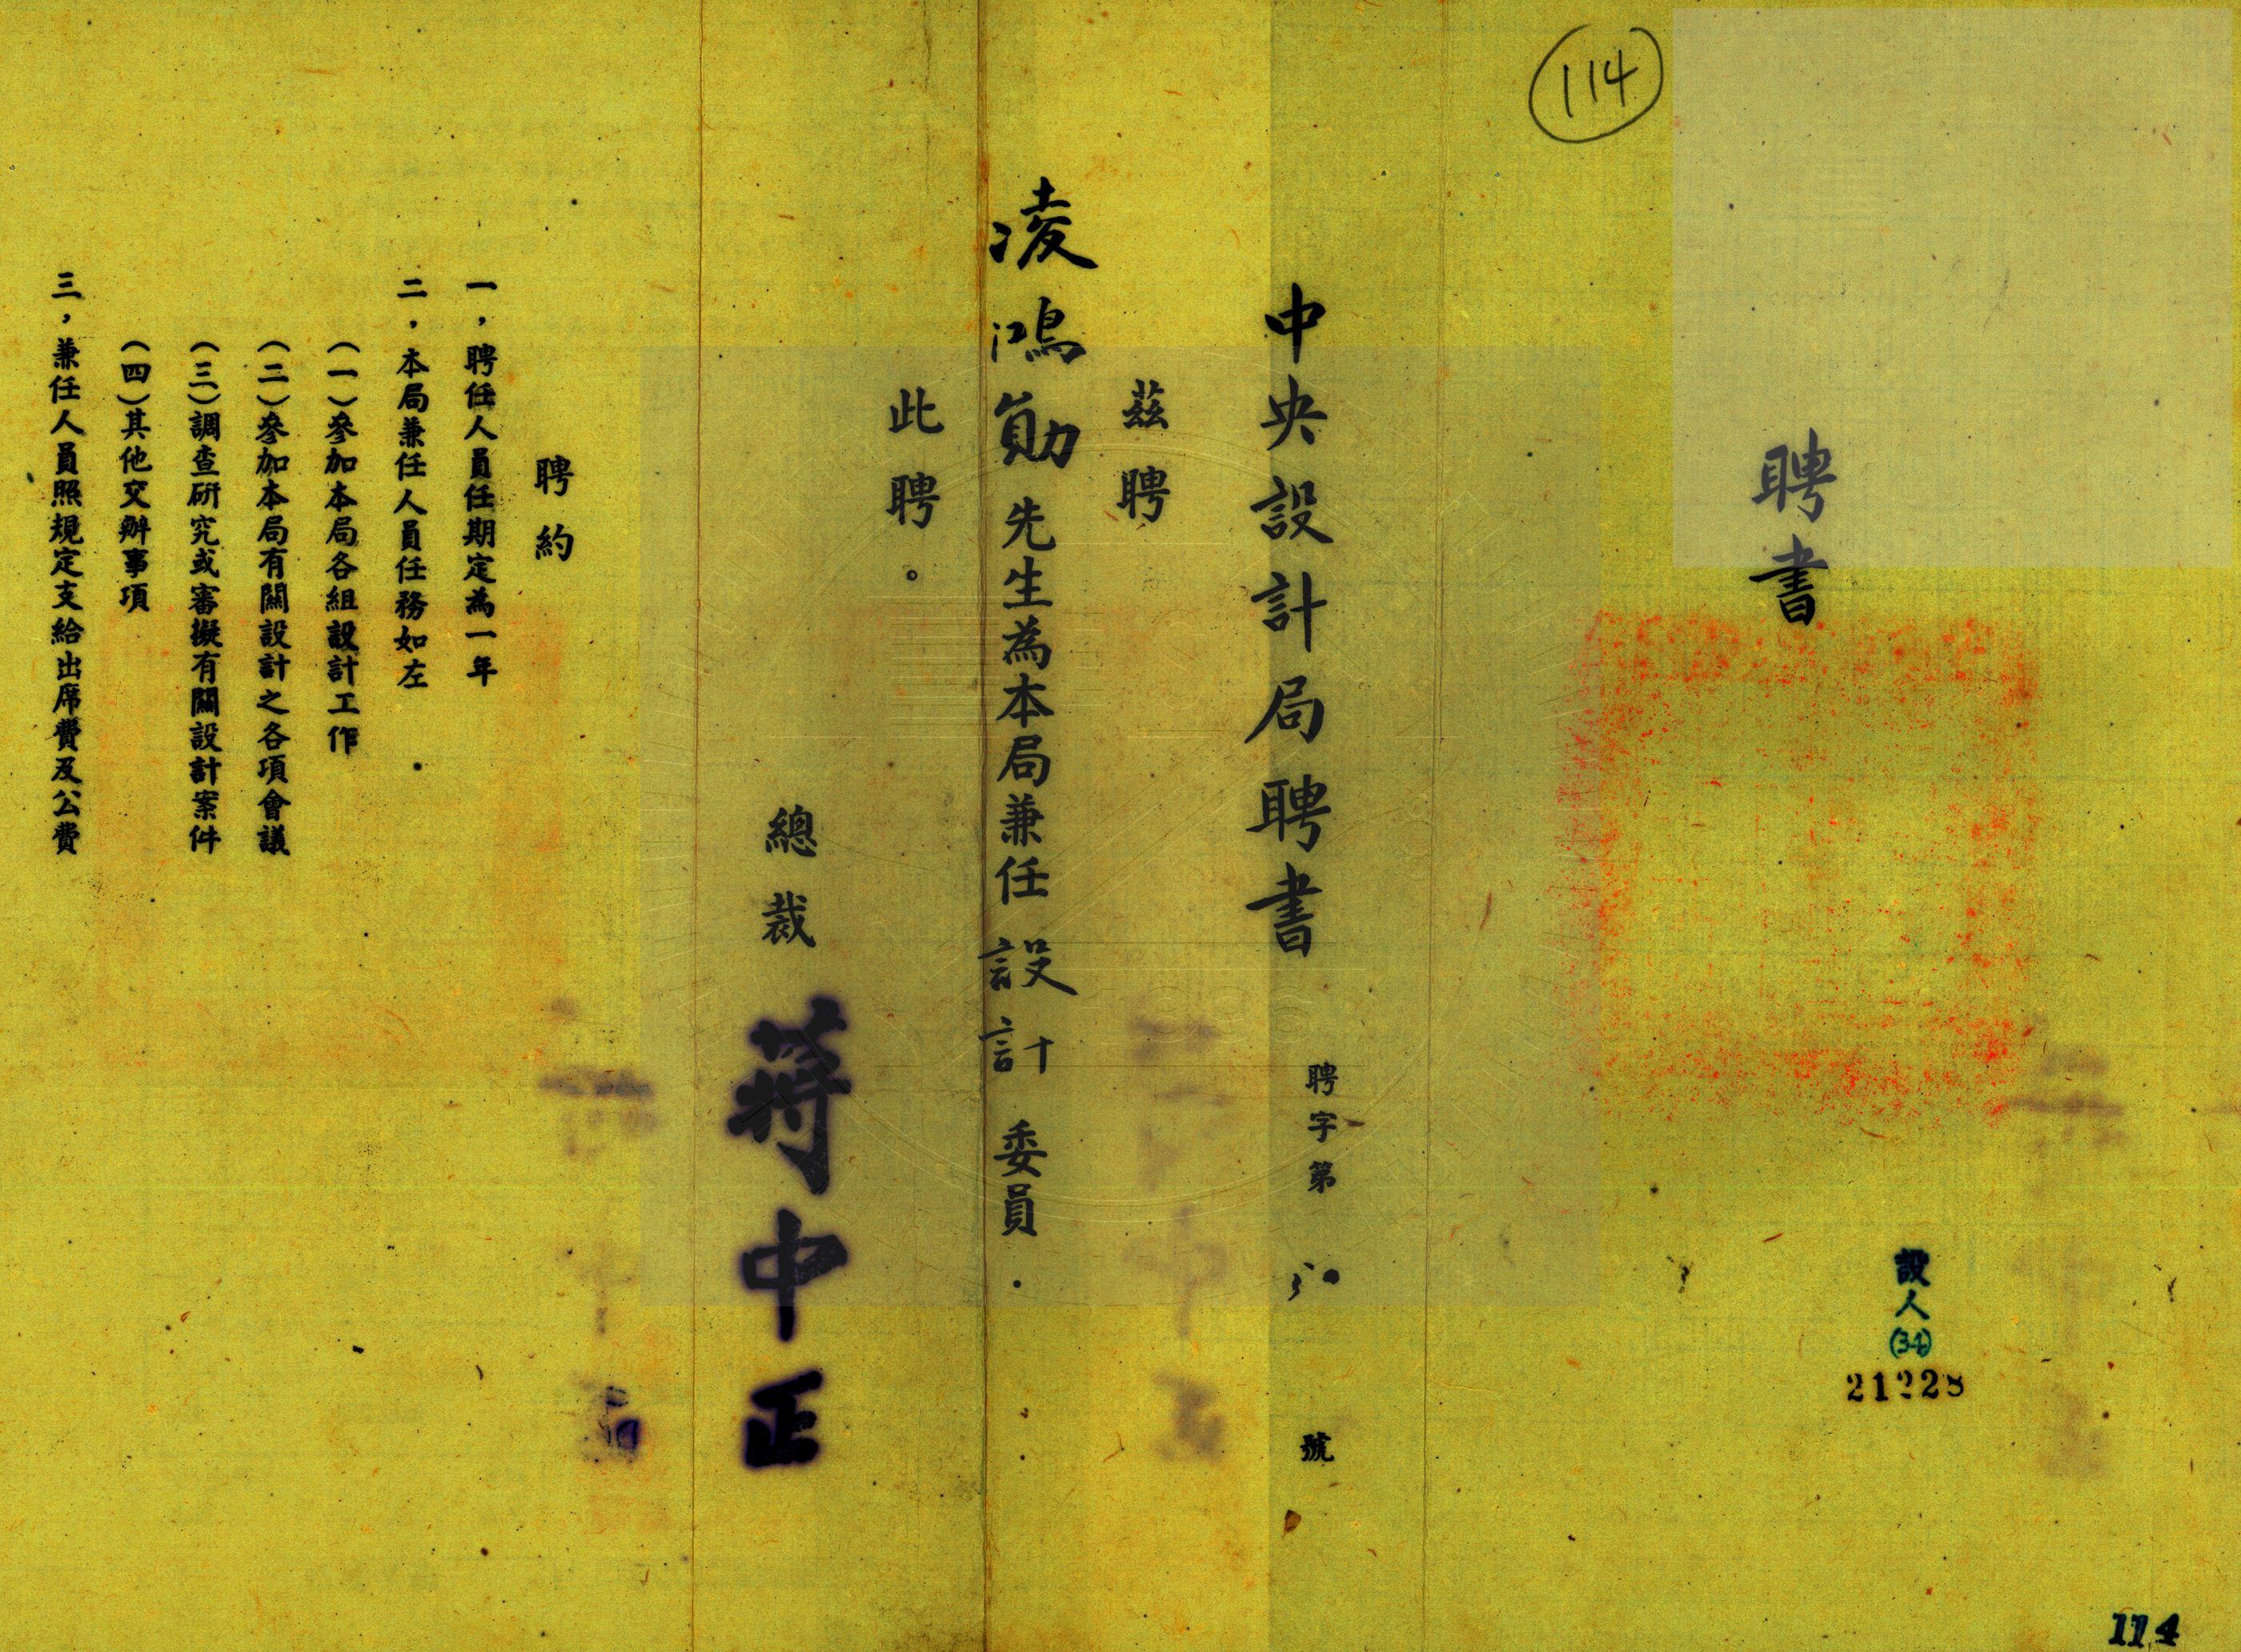 114
聘書
設人(34)
21228
中央設計局聘書
聘字第 號
茲聘
凌鴻勛先生為本局兼任設計委員.
此聘。
總裁 蔣中正
聘約
一,聘任人員任期定為一年
二,本局兼任人員任務如左
(一)參加本局各組設計工作
(二)參加本局有關設計之各項會議
(三)調查研究或審擬有關設計案件
(四)其他交辦事項
三,兼任人員照規定支給出席費及公費
114